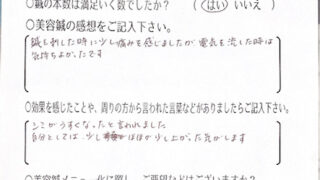 ○鍼の本数は満足いく数でしたか? (はい いいえ)
○美容鍼の感想をご記入下さい。
鍼を刺した時に少し痛みを感じましたが電気を流した時は
気持ちよかったです
○効果を感じたことや、周りの方から言われた言葉などがありましたらご記入下さい。
シミがうすくなったと言われました
自分としては、少し ほほが少し上がった気がします
○美容鍼メニュー化に際し、ご要望などはございますか?